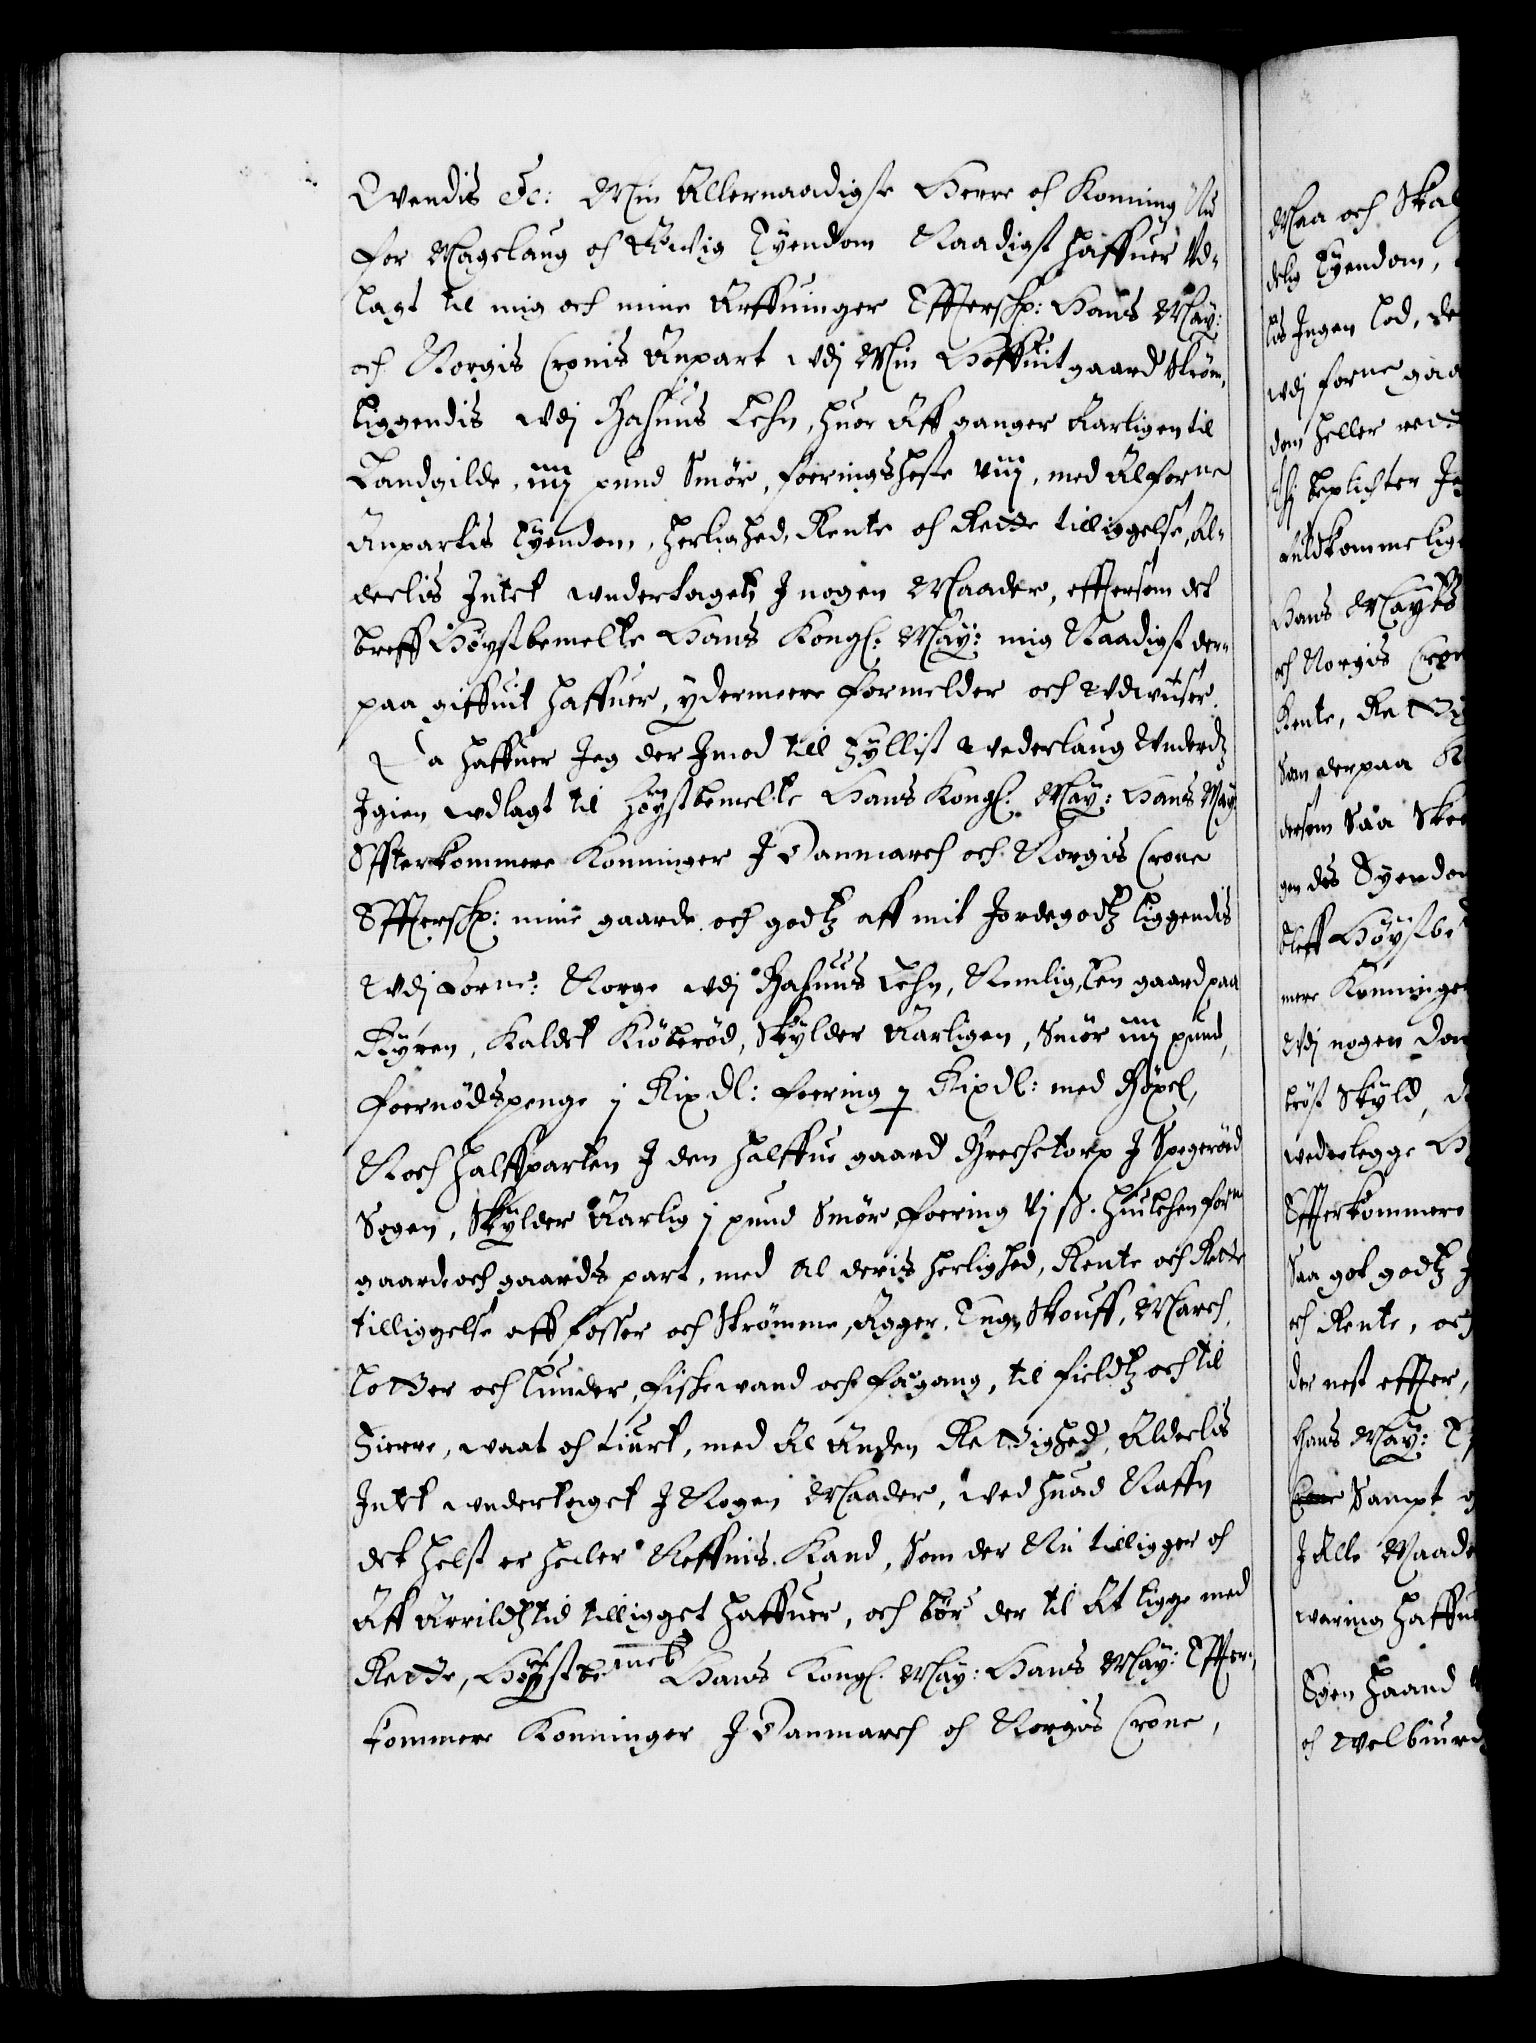 Wendis Etc: Min Allernaadigste Herre och Konning Nu
for Mageslaug och Æwig Eyendom Naadigst haffuer Ud-
lagt til mig och mine Arffuinger Effterschr: Hans May:
och Norgis Cronis Anpart udj Min Hoffuitgaard Strøm,
liggendis udj Bahuus Lehn, huor Aff ganger Aarligen til
Landgilde, iiij pund Smør, foeringsheste viij, med Al forne
Anpartis Eyendom, herlighed, Rente och Rette tilliggelse, Al-
deelis Intet undertaget, J nogen Maader, effttersom det
breff Høystbemelte Hans Kongl: May: mig Naadigst der-
paa giffuit haffuer, ydermeere formelder och Uduiser.
Da haffuer Jeg der Jmod till fyllist Wederlaug
Jgien udlagt til høystbemelte Hans Kongl: May: Hans May:
Effterkommere Konninger J Danmarch och Norgis Crone
Effterschr: mine gaarde och godtz aff mit Jordegodtz liggendis
Udj forne: Norge udj Bahuus Lehn, Nemlig, Een gaard paa
Kaldet Kiøberød, Skylder Aarligen, Smør iiij pund,
foernødspenge j Rixdl: foering Rixdl: med
Noch halffparten J den halffue gaard J Spegerød
Sogen, Skylder Aarlig j pund Smør, foering vj ß. huilchen forne
gaard och gaards part, med Al deris herlighed, Rente och Rette
tilliggelse aff fosser och Strømme, Ager, Eng, Skouff, March,
Lotter och Lunder, fiskewand och fægang, til fieldtz och til
Fierre, waat och tiurt, med Al Anden Rettighed, Aldeelis
Intet undertaget J Nogen Maader, wed huad Naffn
det helst er heller Neffnis Kand, Som der Nu tilligger och
Aff Arrildtz tid tilligget haffuer, och bør der til At ligge med
Rette, Høystbemelt Hans Kongl: May: Hans May: Effter-
kommere Konninger J Danmarch och Norgis Crone,
Maa och Skal
delig Eyendom,
Ingen lod,
udj forne gaa
dom heller
beplichter Je
fuldkommelige
Hans Maytts
och Norgis Cron
Rente,
Som derpaa
dersom Saa Skee
des Eyendom
Bleff Høystbe
mere Konninger
Udj nogen
brøst Skyld,
wederlegge
Effterkommere
Saa got godtz
och Rente, och
der nest effter,
Hans May:
Sampt
J Alle Maade
waring haffue
Egen haand
och Welbiurd